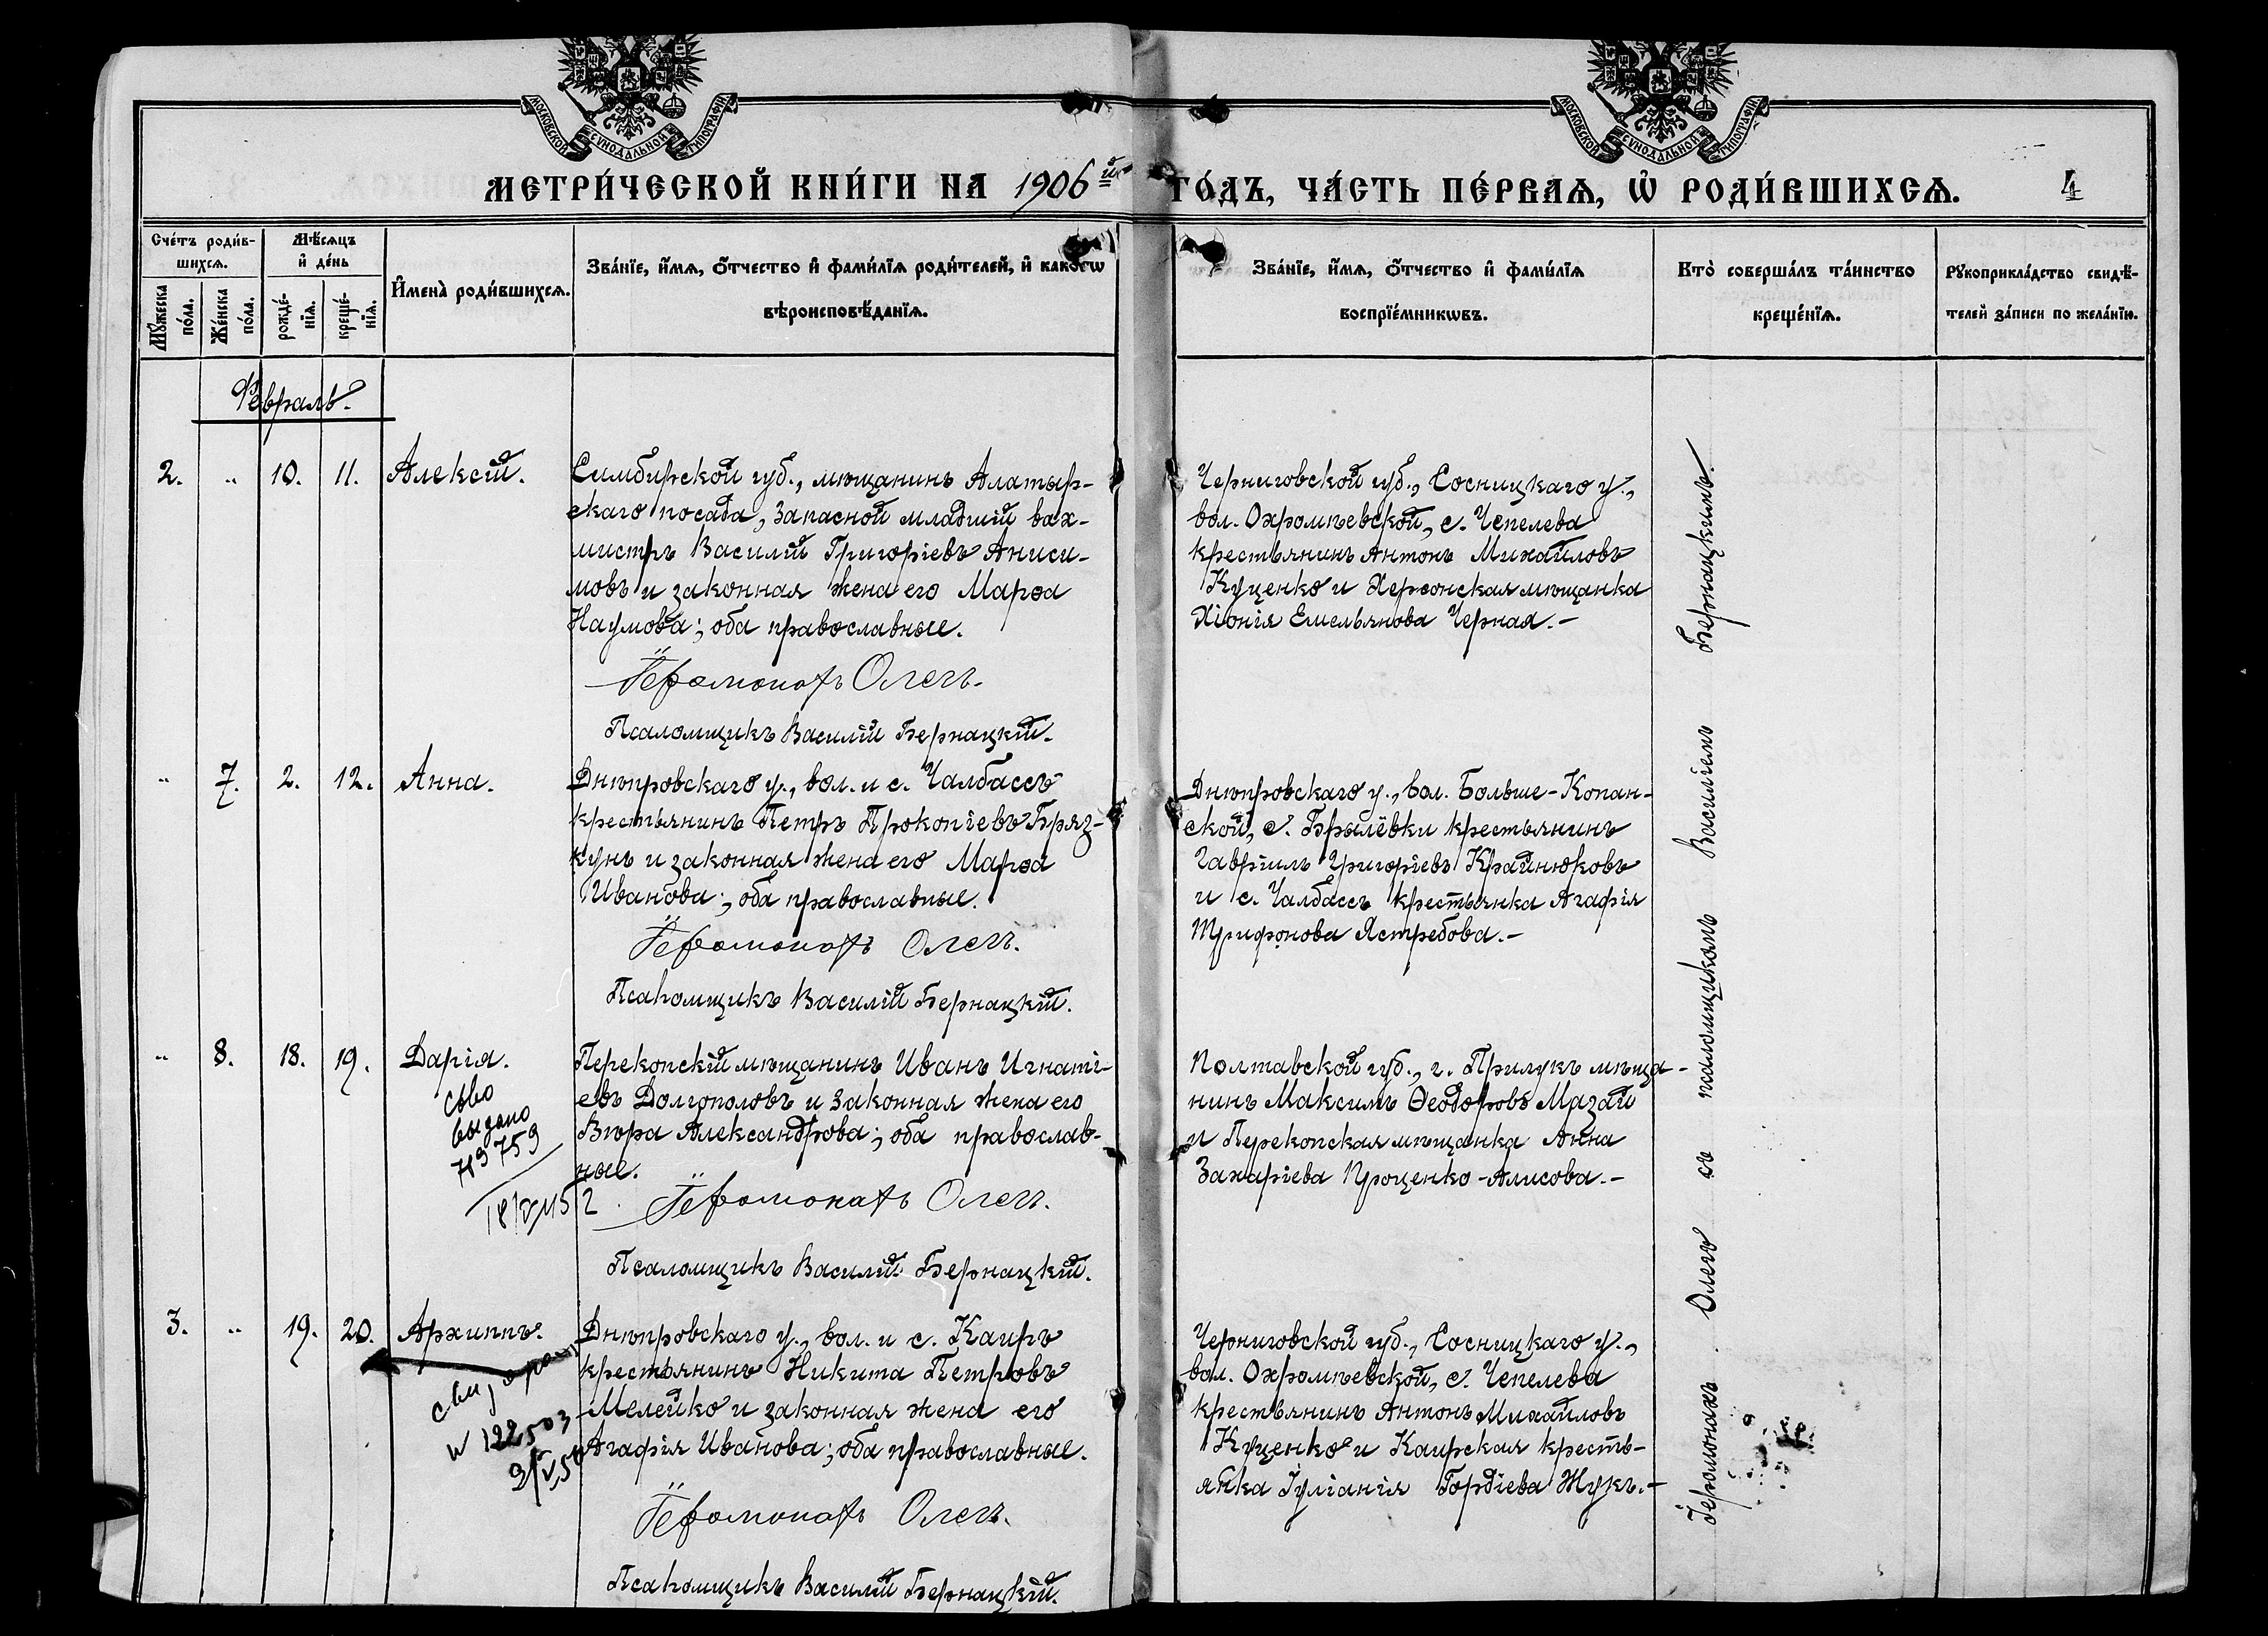 МОСКОВСКОЙ СѴНОДАЛЬНОЙ ТИПОГРАФІИ
МОСКОВСКОЙ СѴНОДАЛЬНОЙ ТИПОГРАФІИ
МЕТРИ́ЧЕСКОЙ КНИ́ГИ НА 1906й ГО́ДЪ, ЧА́СТЬ ПЕ́РВАѦ, Ѡ҆ РОДИ́ВШИХСѦ. 4
Сче́тъ роди́в-
шихсѧ.
Мꙋ́жеска
по́ла.
Же́нска
по́ла.
Мѣ́сѧцъ
и҆ де́нь
рожде́-
нїѧ.
креще́-
нїѧ.
И҆мена̀ роди́вшихсѧ.
Зва́нїе, и҆́мѧ, ѻ҆́тчество и҆ фами́лїѧ роди́телей, и҆ како́гѡ
вѣроисповѣ́данїѧ.
Зва́нїе, и҆́мѧ, ѻ҆́тчество и҆ фами́лїѧ
воспрїе́мникѡвъ.
Кто̀ соверша́лъ та́инство
креще́нїѧ.
Рꙋкоприкла́дство свидѣ́-
телей за́писи по жела́нїю.
Февраль.
2. „ 10. 11. Алексій.
Симбирской губ., мѣщанинъ Алатыр-
скаго посада, запасной младшій вах-
мистръ Василій Григоріевъ Аниси-
мовъ и законная жена его Марѳа
Наумова; оба православные.
Іеромонахъ Олегъ.
Псаломщикъ Василій Бернацкій.
Черниговской губ., Сосницкаго у.,
вол. Охромѣевской, с. Чепелева
крестьянинъ Антонъ Михайловъ
Куценко и Херсонская мѣщанка
Хіонія Емельянова Черная.-
„ 7. 2. 12. Анна.
Днѣпровскаго у., вол. и с. Чалбассъ
крестьянинъ Петръ Прокопіевъ Бряз-
кунъ и законная жена его Марѳа
Иванова; оба православные.
Іеромонахъ Олегъ.
Псаломщикъ Василій Бернацкій.
Днѣпровскаго у., вол. Больше-Копан-
ской, с. Брылёвки крестьянинъ
Гавріилъ Григоріевъ Крайнюковъ
и с. Чалбассъ крестьянка Агафія
Трифонова Ястребова.-
„ 8. 18. 19. Дарія.
Св-во
выдано
759
Перекопскій мѣщанинъ Иванъ Игнаті-
евъ Долгополовъ и законная жена его
Вѣра Александрова; оба православ-
ные.
Іеромонахъ Олегъ.
Псаломщикъ Василій Бернацкій.
Полтавской губ., г. Прилукъ мѣща-
нинъ Максимъ Ѳеодоровъ Мазай
и Перекопская мѣщанка Анна
Захаріева Проценко-Алисова.-
3. „ 19. 20. Архиппъ.
N 122503
Днѣпровскаго у., вол. и с. Каиръ
крестьянинъ Никита Петровъ
Мелейко и законная жена его
Агафія Иванова; оба православные.
Іеромонахъ Олегъ.
Псаломщикъ Василій Бернацкій.
Черниговской губ., Сосницкаго у.,
вол. Охромѣевской, с. Чепелева
крестьянинъ Антонъ Михайловъ
Куценко и Каирская кресть-
янка Іуліанія Гордіева Жукъ.-
Іеромонахъ Олегъ съ псаломщикомъ Василіемъ Бернацкимъ.